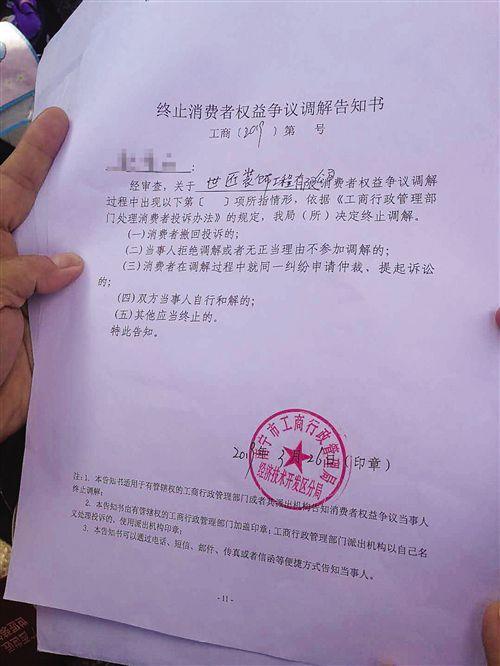 终止消费者权益争议调解告知书
工商〔2019〕第 号
:
经审查,关于 世匠装饰工程有限公司 消费者权益争议调解
过程中出现以下第〔 〕项所指情形,依据《工商行政管理部
门处理消费者投诉办法》的规定,我局(所)决定终止调解。
(一)消费者撤回投诉的;
(二)当事人拒绝调解或者无正当理由不参加调解的;
(三)消费者在调解过程中就同一纠纷申请仲裁、提起诉讼
的;
(四)双方当事人自行和解的;
(五)其他应当终止的。
特此告知。
宁市工商行政管理局
经济技术开发区分局
2019年3月26日(印章)
注:1.本告知书适用于有管辖权的工商行政管理部门或者其派出机构告知消费者权益争议当事人
终止调解;
2.本告知书由有管辖权的工商行政管理部门加盖印章;工商行政管理部门派出机构以自己名
义处理投诉的,使用派出机构印章;
3.本告知书可以通过电话、短信、邮件、传真或者信函等便捷方式告知当事人。
- 11 -